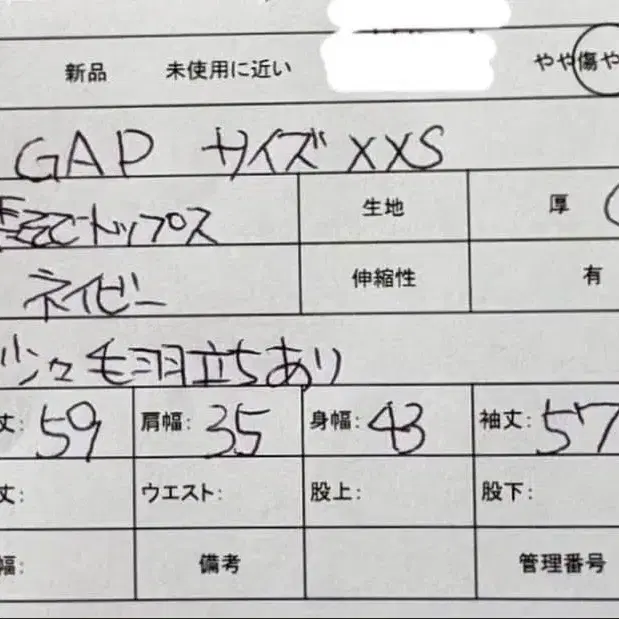 新品 未使用に近い やや傷や
GAP サイズ XXS
長そでトップス 生地 厚
ネイビー 伸縮性 有
少々毛羽立ちあり
丈: 59 肩幅: 35 身幅: 43 袖丈: 57
丈: ウエスト: 股上: 股下:
幅: 備考 管理番号